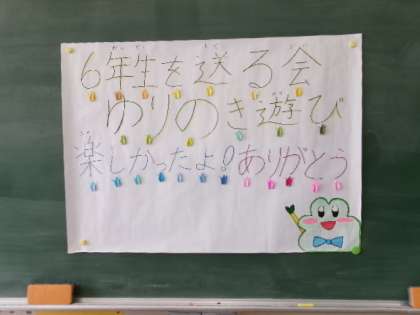 6年生を送る会
ゆりのき遊び
楽しかったよ!ありがとう